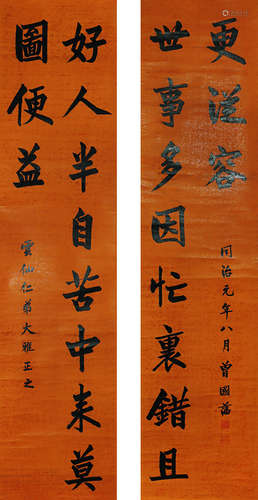 好人半自苦中來莫
圖便益
雲仙仁弟大雅正之
世事多因忙裏錯且
更從容
同治元年八月曾國藩